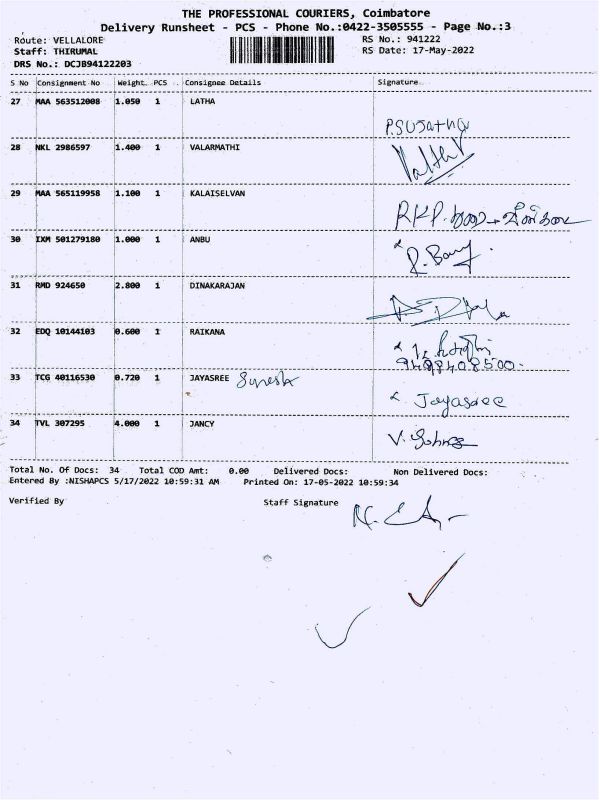 THE PROFESSIONAL COURIERS, Coimbatore
Delivery Runsheet - PCS - Phone No.:0422-3505555 - Page No.:3
Route: VELLALORE RS No.: 941222
Staff: THIRUMAL RS Date: 17-May-2022
DRS No.: DCJB94122203
S No Consignment No Weight. PCS Consignee Details Signature
27 MAA 563512008 1.050 1 LATHA
P.Sujatha
28 NKL 2986597 1.400 1 VALARMATHI
29 MAA 565119958 1.100 1 KALAISELVAN
RKP.
30 IXM 501279180 1.000 1 ANBU
31 RMD 924650 2.800 1 DINAKARAJAN
32 EDQ 10144103 0.600 1 RAIKANA
9498408500
33 TCG 40116530 0.720 1 JAYASREE Suresh
Jayasree
34 TVL 307295 4.000 1 JANCY
Total No. Of Docs: 34 Total COD Amt: 0.00 Delivered Docs: Non Delivered Docs:
Entered By :NISHAPCS 5/17/2022 10:59:31 AM Printed On: 17-05-2022 10:59:34
Verified By Staff Signature